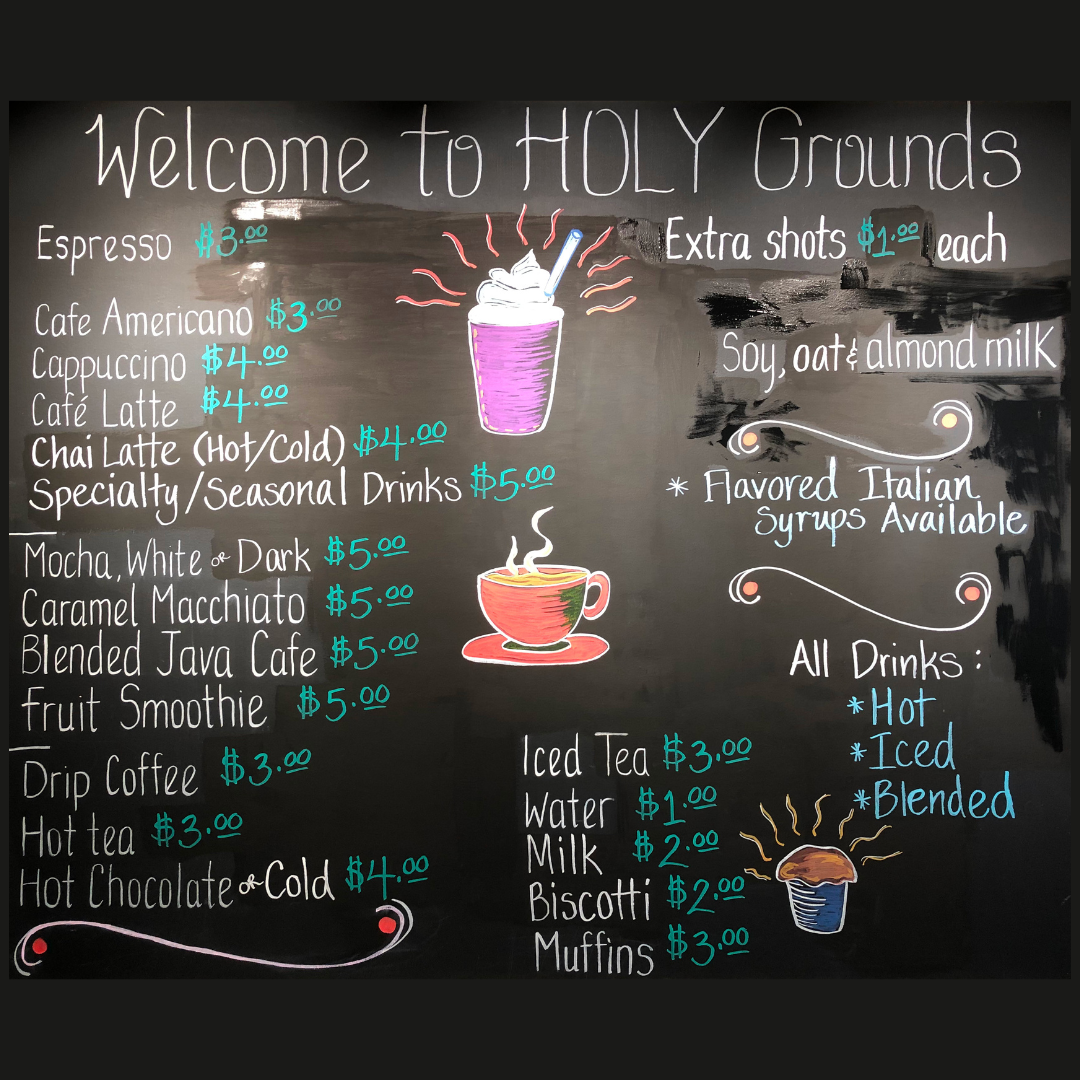 Welcome to HOLY Grounds
Espresso $3.00
Cafe Americano $3.00
Cappuccino $4.00
Café Latte $4.00
Chai Latte (Hot/Cold) $4.00
Specialty/Seasonal Drinks $5.00
Mocha, White or Dark $5.00
Caramel Macchiato $5.00
Blended Java Cafe $5.00
Fruit Smoothie $5.00
Drip Coffee $3.00
Hot tea $3.00
Hot Chocolate or Cold $4.00
Iced Tea $3.00
Water $1.00
Milk $2.00
Biscotti $2.00
Muffins $3.00
Extra shots $1.00 each
Soy, oat & almond milk
* Flavored Italian
Syrups Available
All Drinks:
*Hot
*Iced
*Blended